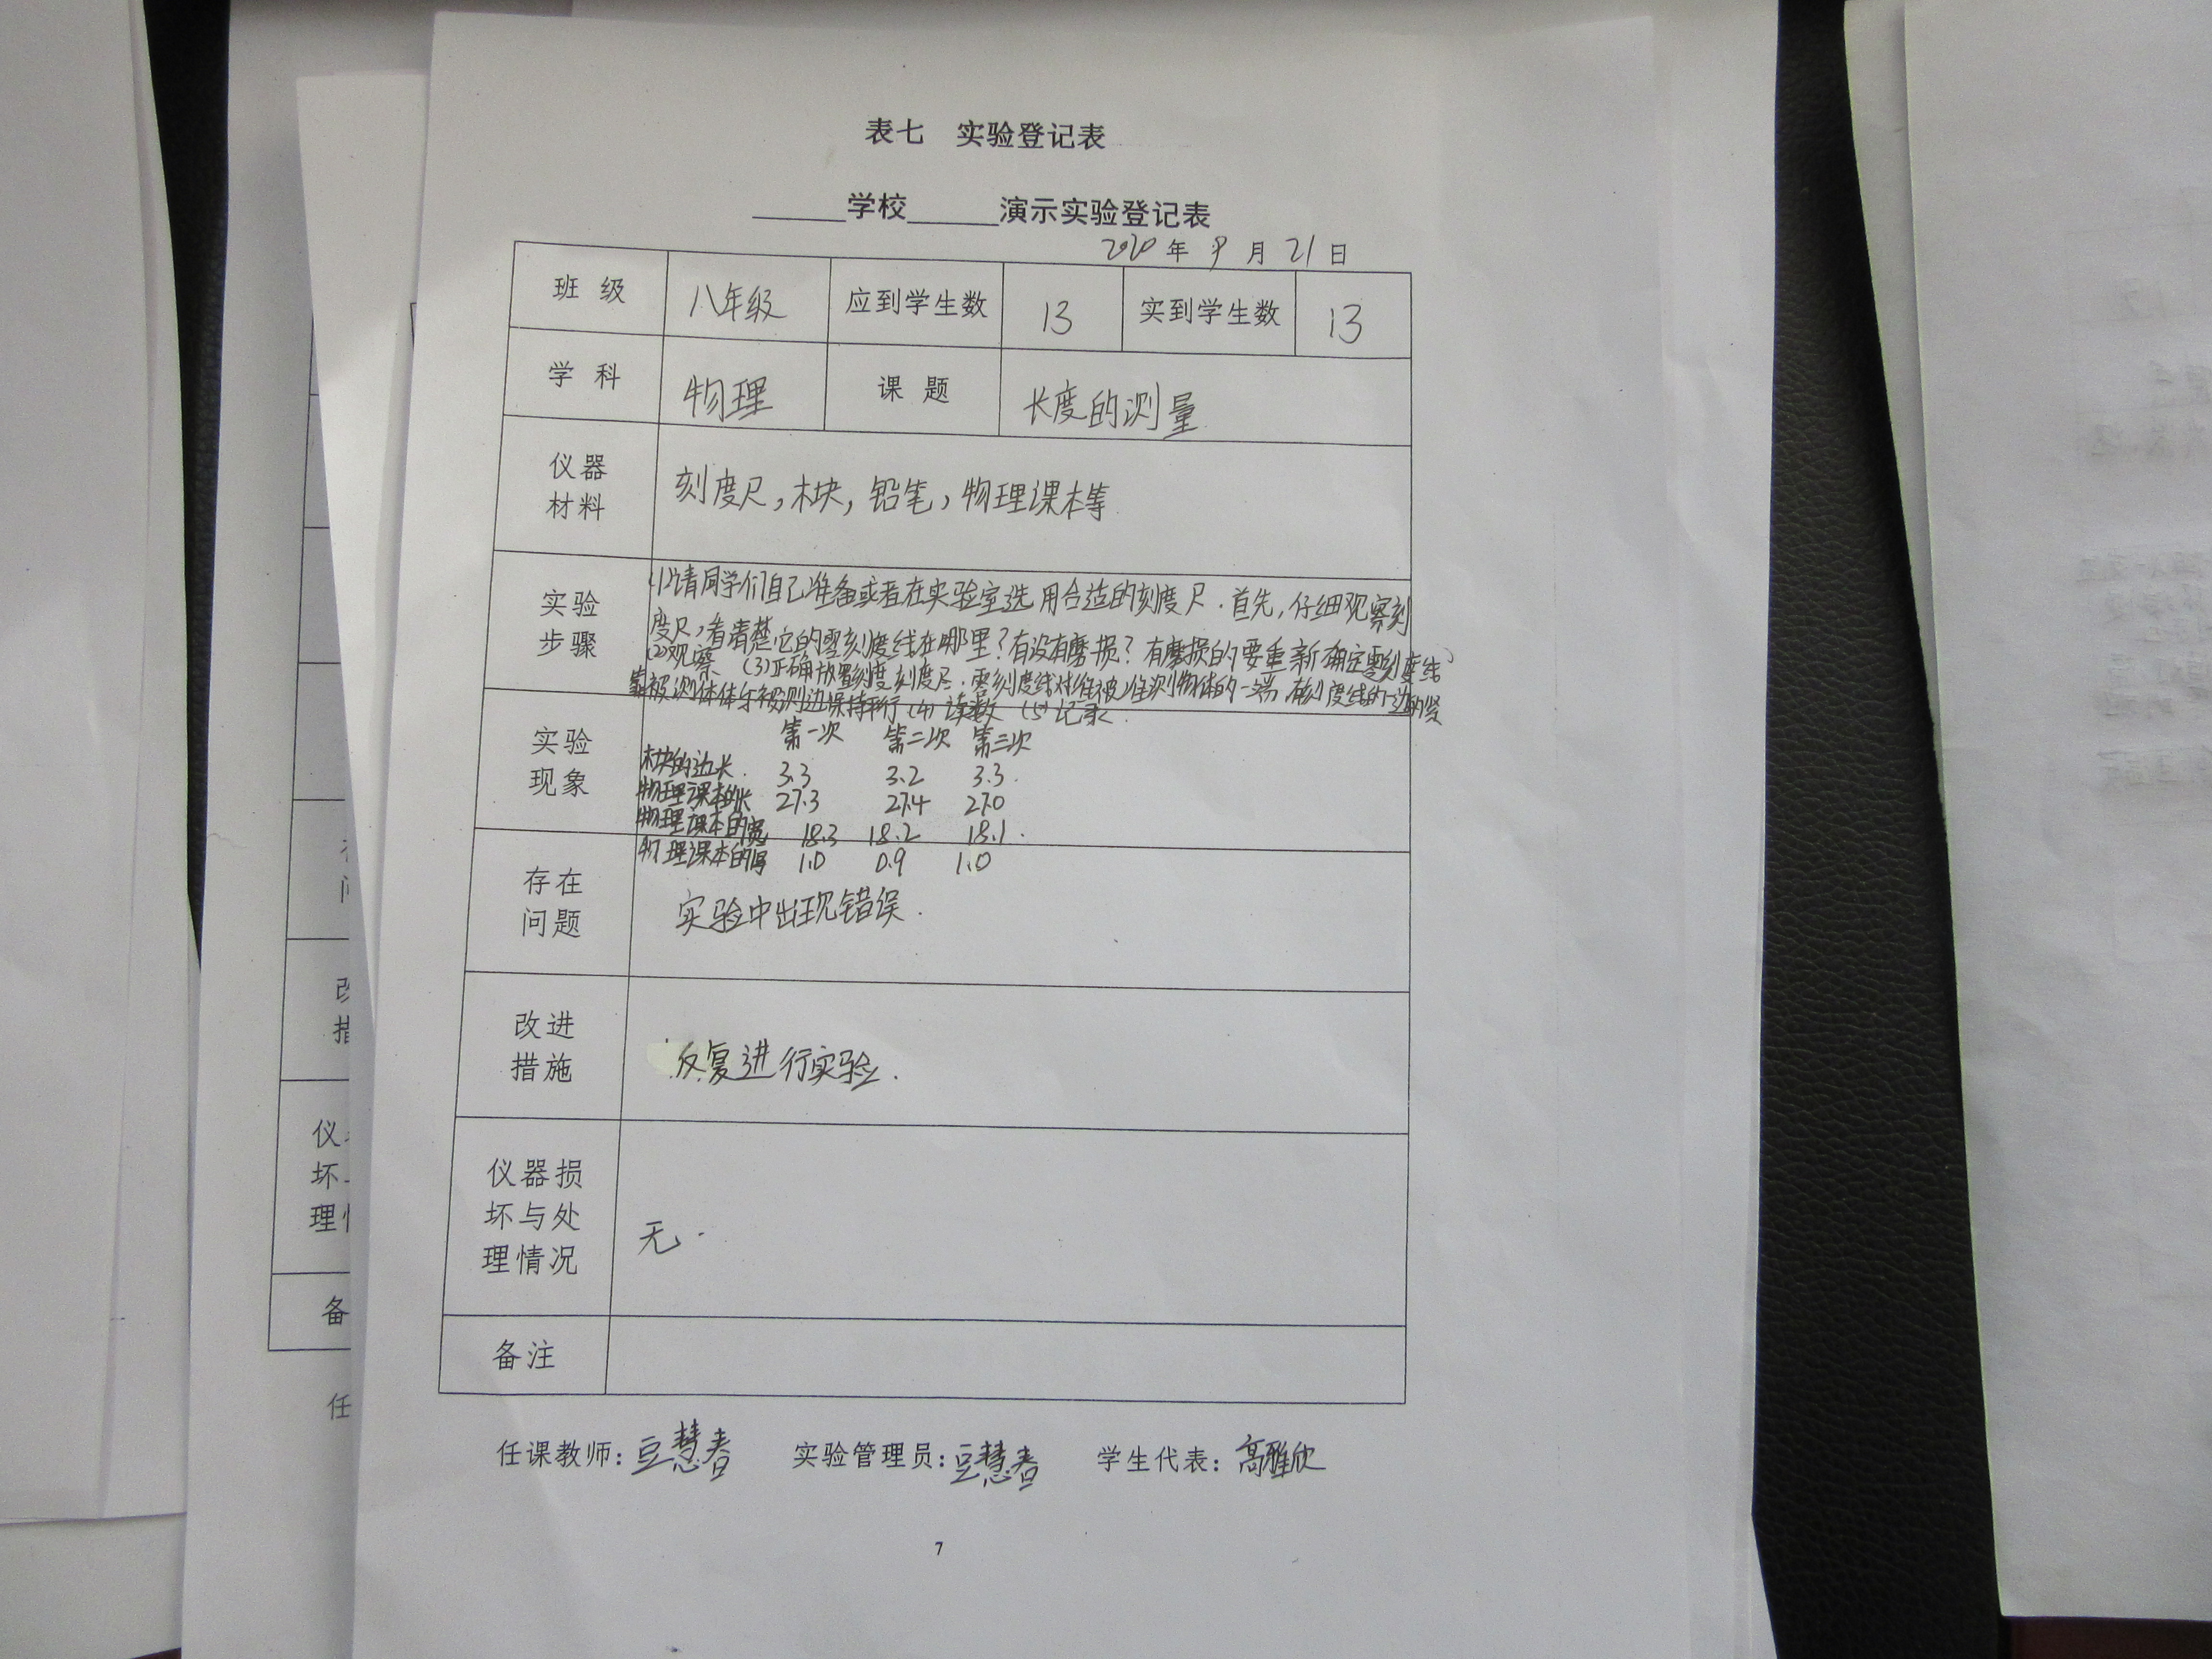 表七 实验登记表
______学校______演示实验登记表
2020 年 9 月 21 日
班 级 八年级 应到学生数 13 实到学生数 13
学 科 物理 课 题 长度的测量
仪器
材料
刻度尺,木块,铅笔,物理课本等
实验
步骤
(1)请同学们自己准备或者在实验室选用合适的刻度尺.首先,仔细观察刻
度尺,看清楚它的零刻度线在哪里?有没有磨损?有磨损的要重新确定零刻度线
(2)观察 (3)正确放置刻度刻度尺.零刻度线对准被测物体的一端 有刻度线的一边的紧
靠被测体体与被测边保持平行 (4) 读数 (5)记录.
实验
现象
第一次 第二次 第三次
木块的边长. 3.3 3.2 3.3.
物理课本的长 27.3 27.4 27.0
物理课本的宽 18.3 18.2 18.1.
物理课本的厚 1.0 0.9 1.0
存在
问题
实验中出现错误.
改进
措施
反复进行实验.
仪器损
坏与处
理情况
无.
备注
任课教师: 豆慧春 实验管理员: 豆慧春 学生代表: 高雅欣
7
改
措
仪
坏
理
备
任